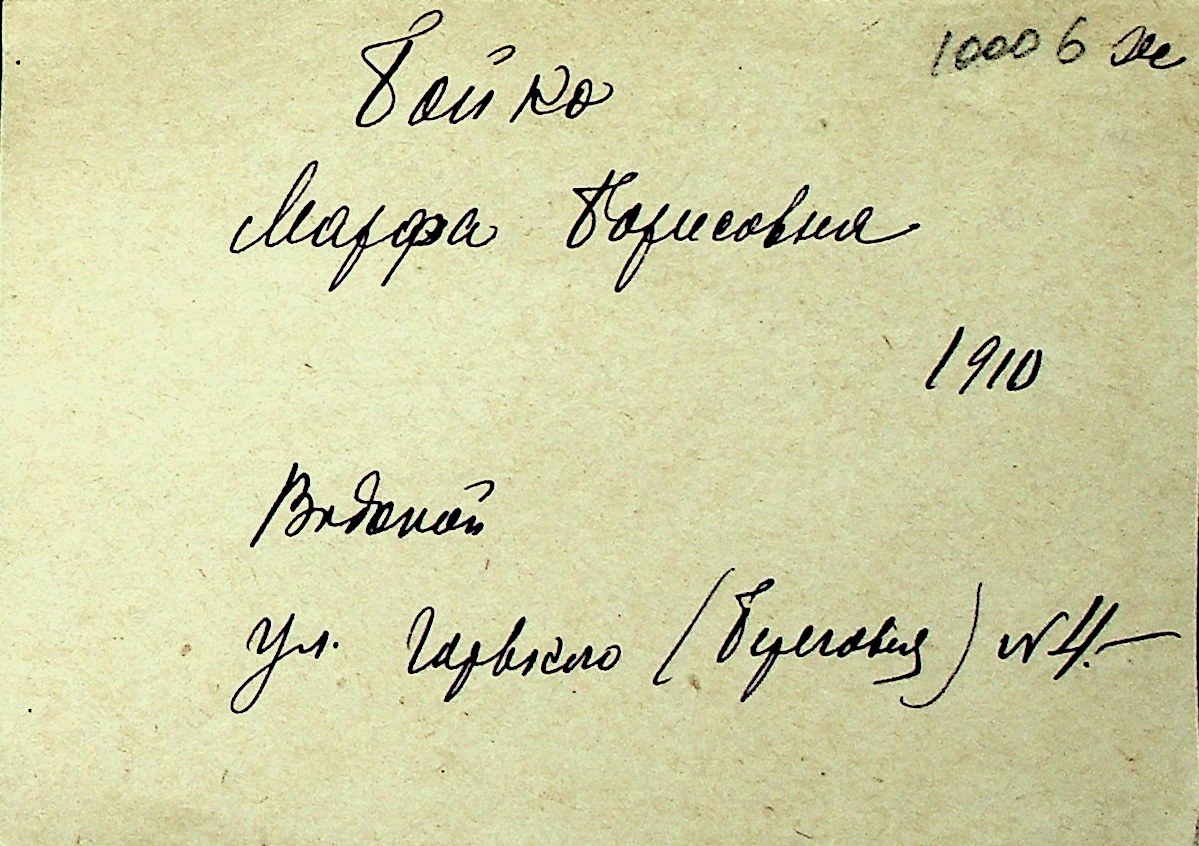 1000 6 же
Бойко
Марфа Борисовна
1910
Водопой
ул. Горького (Береговая) №4.